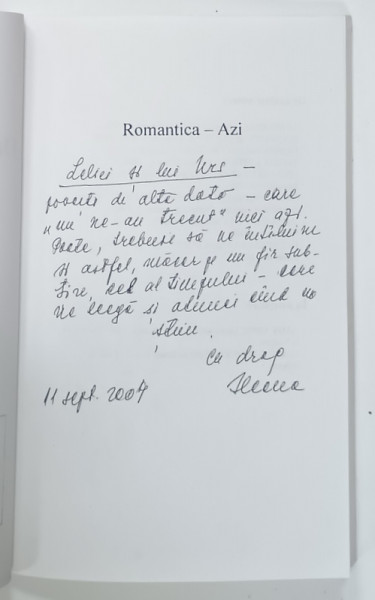 Romantica – Azi
Leliei și lui Urs –
povești de altă dată – care
„nu ne-au trecut” nici azi.
Poate, trebuie să ne întâlnim
și astfel, măcar pe un fir sub-
țire, cel al timpului – care
ne leagă și atunci când nu
știm.
Cu drag
Ileana
11 sept. 2007